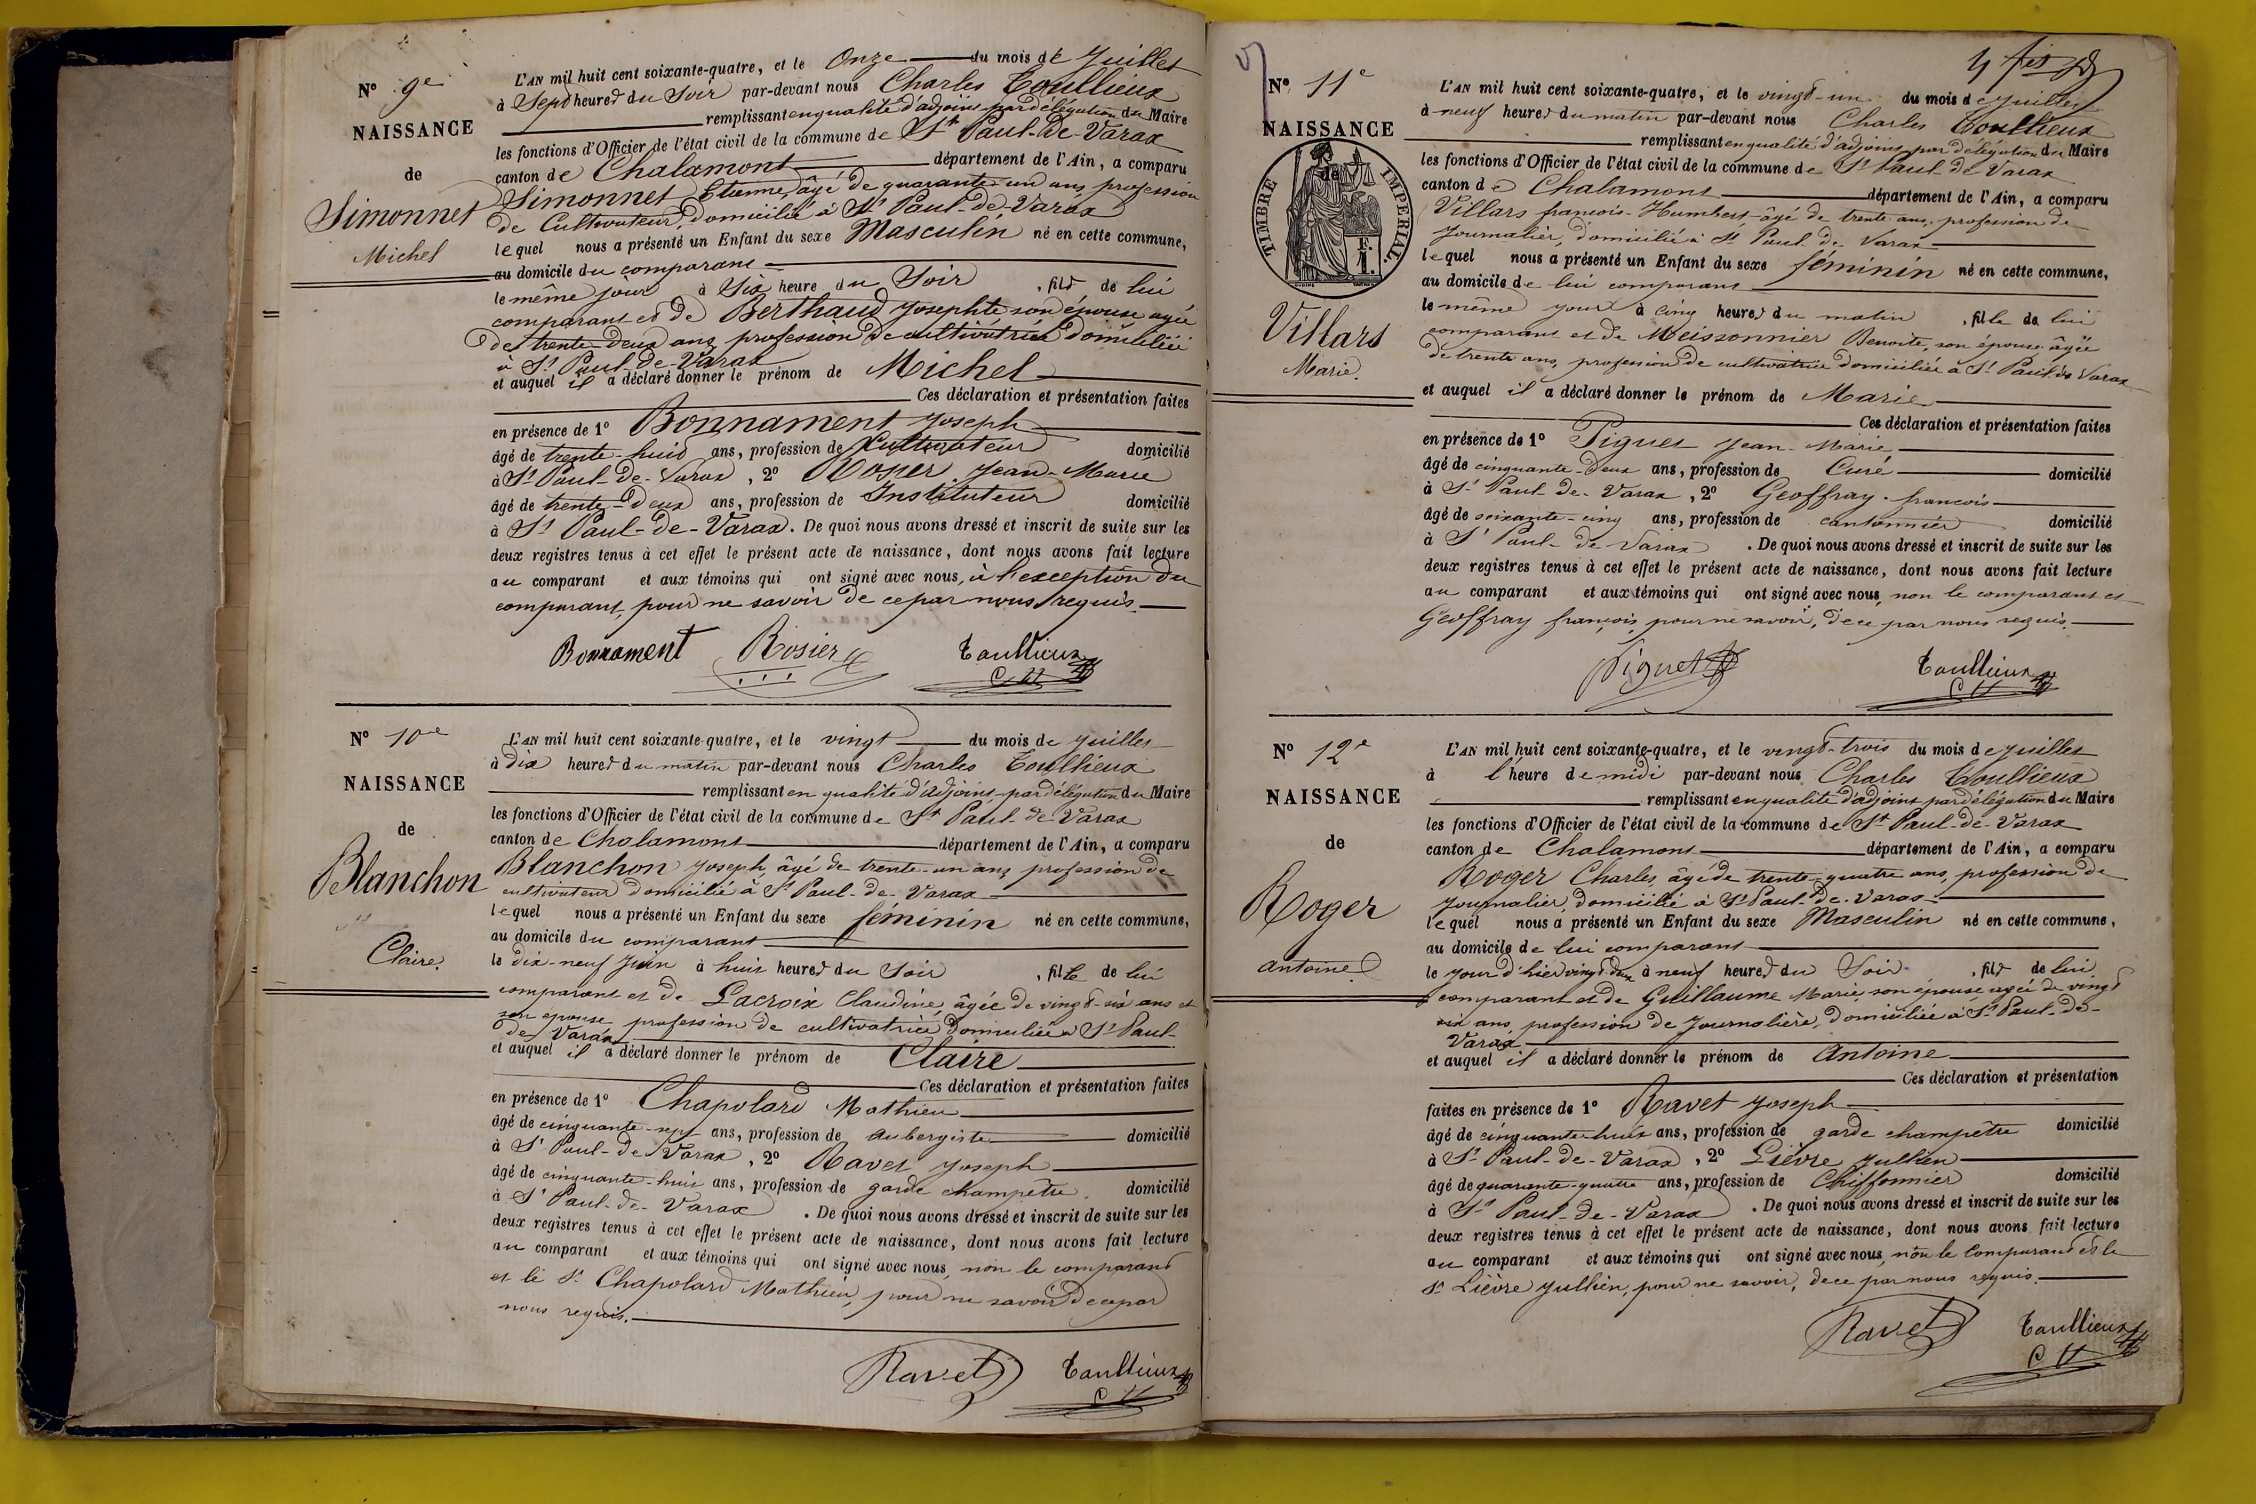 Nº 9e
NAISSANCE
de
Simonnet
Michel
L'AN mil huit cent soixante-quatre, et le Onze du mois de Juillet
à Sept heures du Soir par-devant nous Charles Toullieux
remplissant en qualité d'adjoint par délégation du Maire
les fonctions d'Officier de l'état civil de la commune de St Paul-de-Varax
canton de Chalamont département de l'Ain, a comparu
Simonnet Etienne âgé de quarante-un ans, profession
de Cultivateur, domicilié à St Paul-de-Varax
lequel nous a présenté un Enfant du sexe Masculin né en cette commune,
au domicile du comparant
le même jour à Six heure du Soir, fils de lui
comparant et de Berthaud Josephte son épouse agée
de trente-deux ans, profession de cultivatrice domiciliée
à St Paul-de-Varax
et auquel il a déclaré donner le prénom de Michel
Ces déclaration et présentation faites
en présence de 1º Bonnament Joseph
âgé de trente-huit ans, profession de Cultivateur domicilié
à St Paul-de-Varax, 2º Rosier Jean-Marie
âgé de trente-deux ans, profession de Instituteur domicilié
à St Paul-de-Varax. De quoi nous avons dressé et inscrit de suite sur les
deux registres tenus à cet effet le présent acte de naissance, dont nous avons fait lecture
au comparant et aux témoins qui ont signé avec nous, à l'exception du
comparant, pour ne savoir de ce par nous requis.
Bonnament Rosier Toullieux
C H
Nº 10e
NAISSANCE
de
Blanchon
Claire
L'AN mil huit cent soixante-quatre, et le vingt du mois de Juillet
à dix heures du matin par-devant nous Charles Toullieux
remplissant en qualité d'adjoint par délégation du Maire
les fonctions d'Officier de l'état civil de la commune de St Paul-de-Varax
canton de Chalamont département de l'Ain, a comparu
Blanchon Joseph, âgé de trente-un ans, profession de
cultivateur domicilié à St Paul-de-Varax
lequel nous a présenté un Enfant du sexe féminin né en cette commune,
au domicile du comparant
le dix-neuf Juin à huit heures du Soir, fille de lui
comparant et de Lacroix Claudine, âgée de vingt-six ans et
son épouse profession de cultivatrice domiciliée à St Paul-
de Varax
et auquel il a déclaré donner le prénom de Claire
Ces déclaration et présentation faites
en présence de 1º Chapolard Mathieu
âgé de cinquante-sept ans, profession de aubergiste domicilié
à St Paul-de-Varax, 2º Ravet Joseph
âgé de cinquante-huit ans, profession de garde champêtre. domicilié
à St Paul-de-Varax. De quoi nous avons dressé et inscrit de suite sur les
deux registres tenus à cet effet le présent acte de naissance, dont nous avons fait lecture
au comparant et aux témoins qui ont signé avec nous, non le comparant
et le Sr Chapolard Mathieu, pour ne savoir de ce par
nous requis.
Ravet Toullieux
C H
Nº 11e
NAISSANCE
de
TIMBRE IMPERIAL.
Villars
Marie.
L'AN mil huit cent soixante-quatre, et le vingt-un du mois de Juillet
à neuf heures du matin par-devant nous Charles Toullieux
remplissant en qualité d'adjoint par délégation du Maire
les fonctions d'Officier de l'état civil de la commune de St Paul de Varax
canton de Chalamont département de l'Ain, a comparu
Villars françois-Humbert âgé de trente ans, profession de
Journalier, domicilié à St Paul de Varax
lequel nous a présenté un Enfant du sexe féminin né en cette commune,
au domicile de lui comparant
le même jour à cinq heures du matin, fille de lui
comparant et de Meissonnier Benoite, son épouse âgée
de trente ans, profession de cultivatrice domiciliée à St Paul de Varax
et auquel il a déclaré donner le prénom de Marie
Ces déclaration et présentation faites
en présence de 1º Piguet Jean-Marie,
âgé de cinquante-deux ans, profession de Curé domicilié
à St Paul-de-Varax, 2º Geoffray françois
âgé de soixante-cinq ans, profession de cantonnier domicilié
à St Paul-de-Varax. De quoi nous avons dressé et inscrit de suite sur les
deux registres tenus à cet effet le présent acte de naissance, dont nous avons fait lecture
au comparant et aux témoins qui ont signé avec nous, non le comparant et
Geoffray françois, pour ne savoir, de ce par nous requis.
Piguet Toullieux
C H
Nº 12e
NAISSANCE
de
Roger
antoine
L'AN mil huit cent soixante-quatre, et le vingt-trois du mois de Juillet
à l'heure de midi par-devant nous Charles Toullieux
remplissant en qualité d'adjoint par délégation du Maire
les fonctions d'Officier de l'état civil de la commune de St Paul-de-Varax
canton de Chalamont département de l'Ain, a comparu
Roger Charles, âgé de trente-quatre ans, profession de
Journalier, domicilié à St Paul-de-Varax
lequel nous a présenté un Enfant du sexe Masculin né en cette commune,
au domicile de lui comparant
le jour d'hier vingt deux à neuf heures du Soir, fils de lui
comparant et de Guillaume Marie, son épouse agée de vingt
six ans, profession de Journalière, domiciliée à St Paul-de-
Varax
et auquel il a déclaré donner le prénom de Antoine
Ces déclaration et présentation
faites en présence de 1º Ravet Joseph
âgé de cinquante-huit ans, profession de garde champêtre domicilié
à St Paul-de-Varax, 2º Lièvre Jullien
âgé de quarante-quatre ans, profession de Chiffonnier domicilié
à St Paul-de-Varax. De quoi nous avons dressé et inscrit de suite sur les
deux registres tenus à cet effet le présent acte de naissance, dont nous avons fait lecture
au comparant et aux témoins qui ont signé avec nous, non le Comparant et le
Sr Lièvre Jullien, pour ne savoir, de ce par nous requis.
Ravet Toullieux
C H